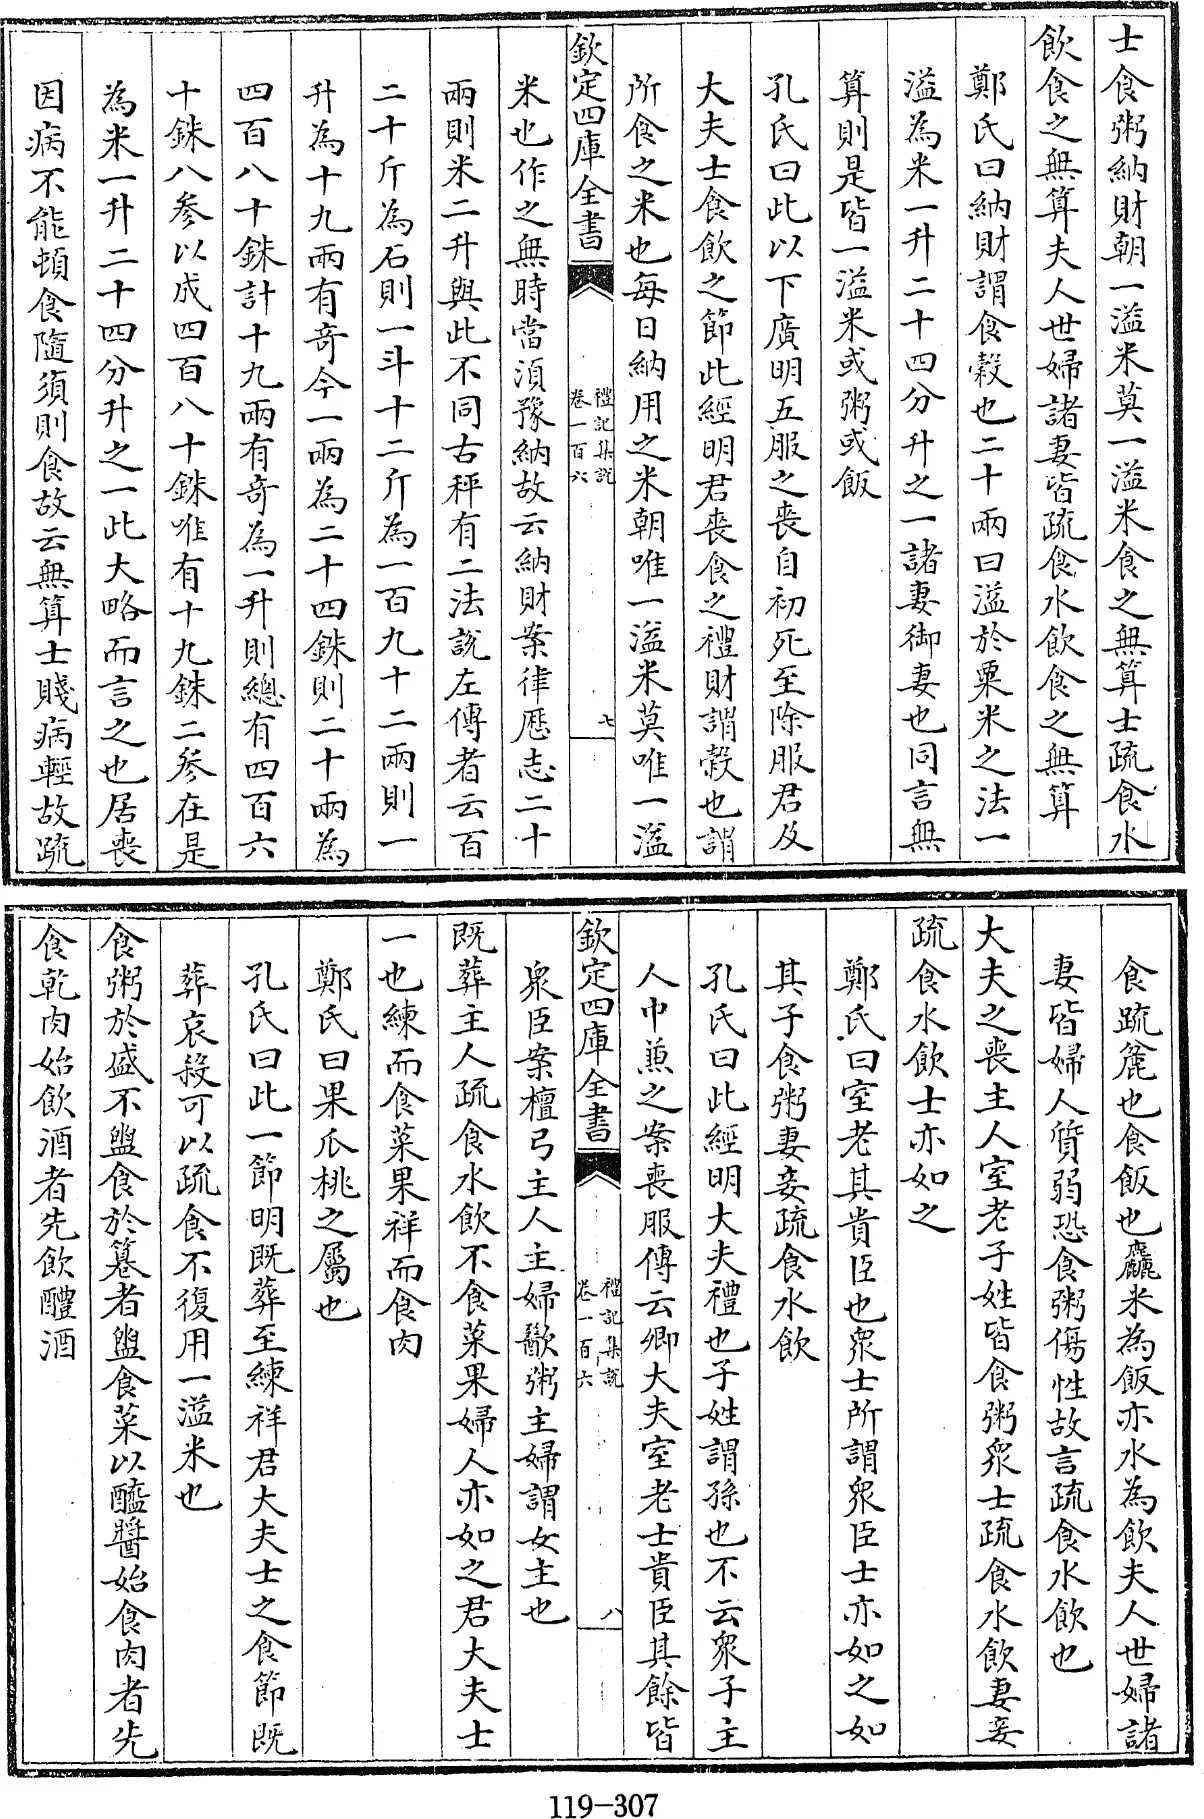 士食粥納財朝一溢米莫一溢米食之無算士疏食水
飲食之無算夫人世婦諸妻皆疏食水飲食之無算
鄭氏曰納財謂食榖也二十兩曰溢於粟米之法一
溢為米一升二十四分升之一諸妻御妻也同言無
算則是皆一溢米或粥或飯
孔氏曰此以下廣明五服之喪自初死至除服君及
大夫士食飲之節此經明君喪食之禮財謂榖也謂
所食之米也每日納用之米朝唯一溢米莫唯一溢
欽定四庫全書
禮記集說
卷一百六
七
米也作之無時當須豫納故云納財案律歷志二十
兩則米二升與此不同古秤有二法說左傳者云百
二十斤為石則一斗十二斤為一百九十二兩則一
升為十九兩有奇今一兩為二十四銖則二十兩為
四百八十銖計十九兩有奇為一升則總有四百六
十銖八參以成四百八十銖唯有十九銖二參在是
為米一升二十四分升之一此大略而言之也居喪
因病不能頓食隨須則食故云無算士賤病輕故疏
食疏麄也食飯也麤米為飯亦水為飲夫人世婦諸
妻皆婦人質弱恐食粥傷性故言疏食水飲也
大夫之喪主人室老子姓皆食粥衆士疏食水飲妻妾
疏食水飲士亦如之
鄭氏曰室老其貴臣也衆士所謂衆臣士亦如之如
其子食粥妻妾疏食水飲
孔氏曰此經明大夫禮也子姓謂孫也不云衆子主
人中兼之案喪服傳云卿大夫室老士貴臣其餘皆
欽定四庫全書
禮記集說
卷一百六
八
衆臣案檀弓主人主婦歠粥主婦謂女主也
既葬主人疏食水飲不食菜果婦人亦如之君大夫士
一也練而食菜果祥而食肉
鄭氏曰果瓜桃之屬也
孔氏曰此一節明既葬至練祥君大夫士之食節既
葬哀殺可以疏食不復用一溢米也
食粥於盛不盥食於篹者盥食菜以醯醬始食肉者先
食乾肉始飲酒者先飲醴酒
119-307